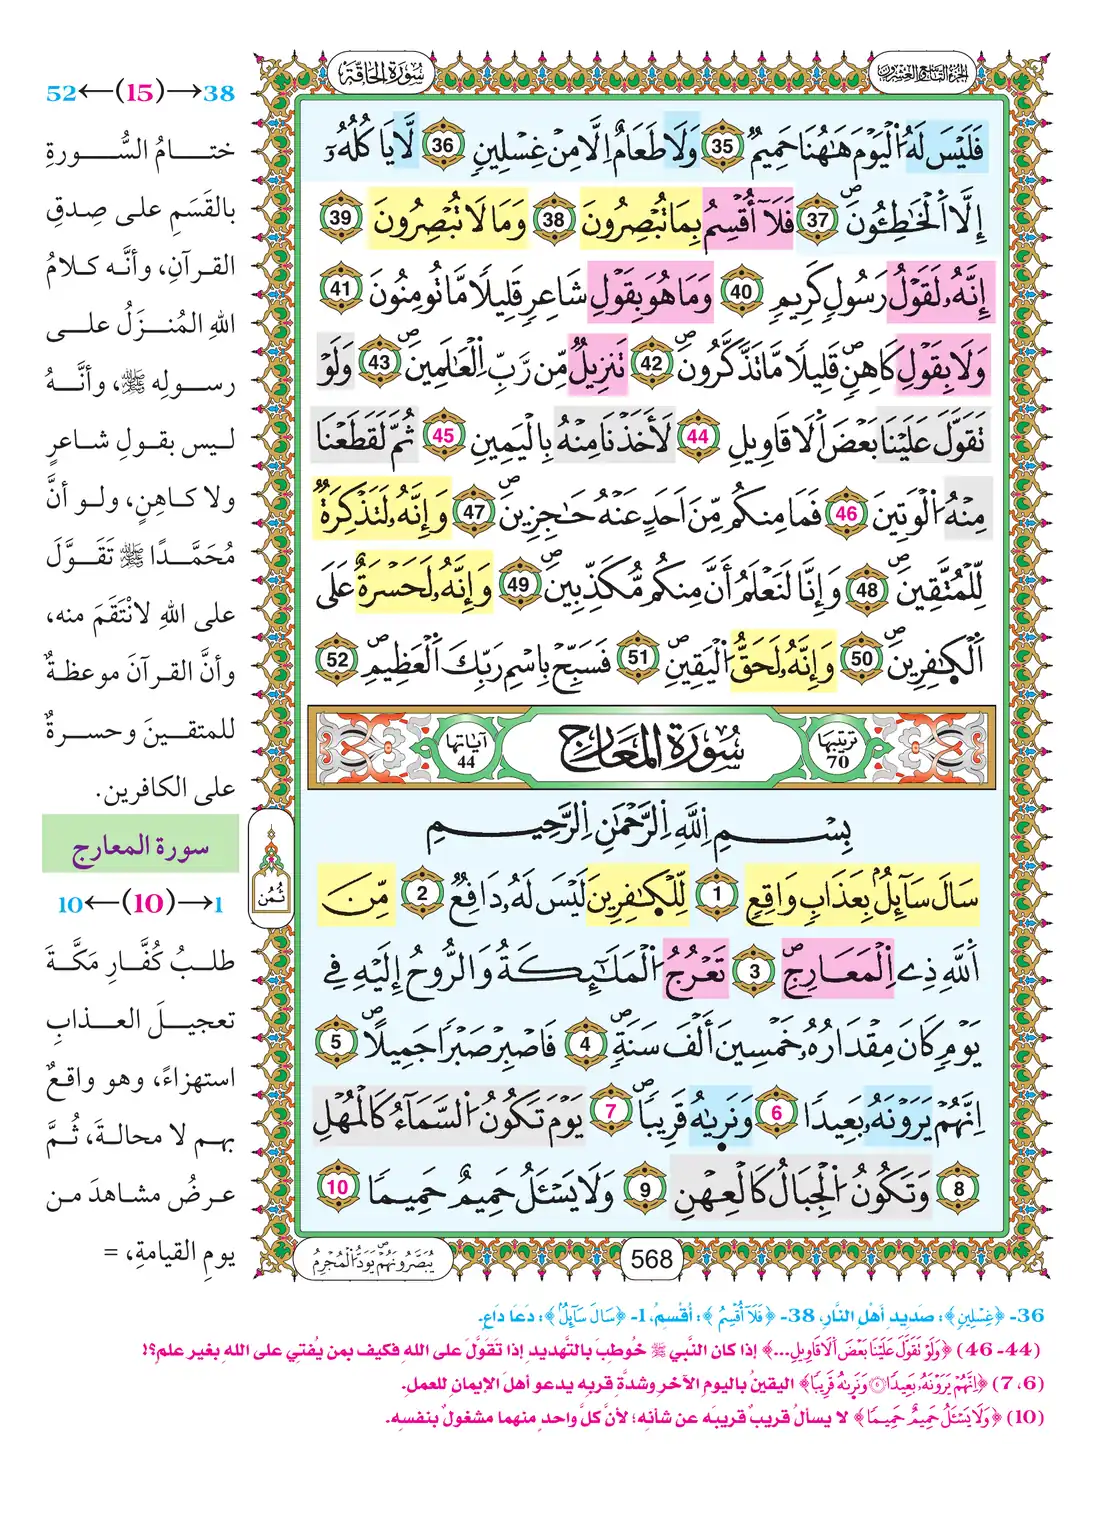 سُورَةُ الحَاقَّة
الجزء التاسع والعشرون
فَلَيْسَ لَهُ اُ۬لْيَوْمَ هَٰهُنَا حَمِيمٞ 35 وَلَا طَعَامٌ اِلَّا مِنْ غِسْلِينٖ 36 لَّا يَاكُلُهُۥٓ
إِلَّا اَ۬لْخَٰطِـُٔونَۖ 37 فَلَآ أُقْسِمُ بِمَا تُبْصِرُونَ 38 وَمَا لَا تُبْصِرُونَ 39
إِنَّهُۥ لَقَوْلُ رَسُولٖ كَرِيمٖ 40 وَمَا هُوَ بِقَوْلِ شَاعِرٖ قَلِيلٗا مَّا تُومِنُونَ 41
وَلَا بِقَوْلِ كَاهِنٖۖ قَلِيلٗا مَّا تَذَّكَّرُونَۖ 42 تَنزِيلٞ مِّن رَّبِّ اِ۬لْعَٰلَمِينَۖ 43 وَلَوْ
تَقَوَّلَ عَلَيْنَا بَعْضَ اَ۬لَاقَاوِيلِ 44 لَأَخَذْنَا مِنْهُ بِالْيَمِينِ 45 ثُمَّ لَقَطَعْنَا
مِنْهُ اُ۬لْوَتِينَ 46 فَمَا مِنكُم مِّنَ اَحَدٍ عَنْهُ حَٰجِزِينَۖ 47 وَإِنَّهُۥ لَتَذْكِرَةٞ
لِّلْمُتَّقِينَۖ 48 وَإِنَّا لَنَعْلَمُ أَنَّ مِنكُم مُّكَذِّبِينَۖ 49 وَإِنَّهُۥ لَحَسْرَةٌ عَلَى
اَ۬لْكٰ۪فِرِينَۖ 50 وَإِنَّهُۥ لَحَقُّ اُ۬لْيَقِينِۖ 51 فَسَبِّحْ بِاسْمِ رَبِّكَ اَ۬لْعَظِيمِۖ 52
ترتيبها 70 سُورَةُ المَعَارِج آياتها 44
بِسْمِ اِ۬للَّهِ اِ۬لرَّحْمَٰنِ اِ۬لرَّحِيمِ
سَالَ سَآئِلُۢ بِعَذَابٖ وَاقِعٖ 1 لِّلْكٰ۪فِرِينَ لَيْسَ لَهُۥ دَافِعٞ 2 مِّنَ
اَ۬للَّهِ ذِے اِ۬لْمَعَارِجِۖ 3 تَعْرُجُ اُ۬لْمَلَٰٓئِكَةُ وَالرُّوحُ إِلَيْهِ فِے
يَوْمٖ كَانَ مِقْدَارُهُۥ خَمْسِينَ أَلْفَ سَنَةٖۖ 4 فَاصْبِرْ صَبْرٗا جَمِيلًاۖ 5
اِنَّهُمْ يَرَوْنَهُۥ بَعِيدٗا 6 وَنَر۪يٰهُ قَرِيبٗاۖ 7 يَوْمَ تَكُونُ اُ۬لسَّمَآءُ كَالْمُهْلِ
8 وَتَكُونُ اُ۬لْجِبَالُ كَالْعِهْنِ 9 وَلَا يَسْـَٔلُ حَمِيمٌ حَمِيمٗا 10
568
يُبَصَّرُونَهُمْۖ يَوَدُّ اُ۬لْمُجْرِمُ
ثُمُن
38→(15)←52
ختـامُ السُّورةِ
بالقَسَمِ على صِدقِ
القرآنِ، وأنَّه كلامُ
اللهِ المُنزَلُ على
رسولِه ﷺ، وأنَّهُ
ليس بقولِ شاعرٍ
ولا كاهِنٍ، ولو أنَّ
مُحَمَّدًا ﷺ تَقَوَّلَ
على اللهِ لانْتَقَمَ منه،
وأنَّ القرآنَ موعظةٌ
للمتقينَ وحسرةٌ
على الكافرين.
سورة المعارج
1→(10)←10
طلبُ كُفَّارِ مَكَّةَ
تعجيلَ العذابِ
استهزاءً، وهو واقعٌ
بهم لا محالةَ، ثُمَّ
عرضُ مشاهدَ من
يومِ القيامةِ، =
36- ﴿غِسْلِينٖ﴾: صَديدِ أهْلِ النَّارِ، 38- ﴿فَلَآ أُقْسِمُ﴾: أُقْسِمُ، 1- ﴿سَالَ سَآئِلُۢ﴾: دَعَا دَاعٍ.
(44- 46) ﴿وَلَوْ تَقَوَّلَ عَلَيْنَا بَعْضَ اَ۬لَاقَاوِيلِ...﴾ إذا كان النَّبي ﷺ خُوطِبَ بالتَّهديدِ إذا تَقَوَّلَ على اللهِ فكيف بمن يُفتِي على اللهِ بغير علمٍ؟!
(6، 7) ﴿اِنَّهُمْ يَرَوْنَهُۥ بَعِيدٗا ٦ وَنَر۪يٰهُ قَرِيبٗا﴾ اليقينُ باليومِ الآخرِ وشدَّةِ قربِه يدعو أهلَ الإيمانِ للعملِ.
(10) ﴿وَلَا يَسْـَٔلُ حَمِيمٌ حَمِيمٗا﴾ لا يسألُ قريبٌ قريبَه عن شأنِه؛ لأنَّ كلَّ واحدٍ منهما مشغولٌ بنفسِه.